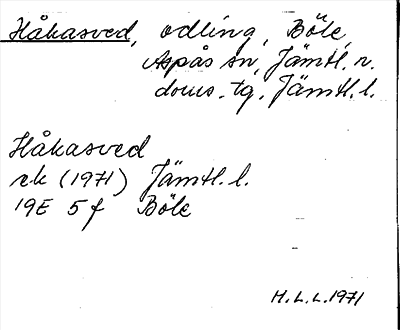 Håkasved, odling, Böle,
Aspås sn, Jämtl. n.
doms. tg. Jämtl. l.
Håkasved
ek (1971) Jämtl. l.
19E 5f Böle
H. L. L. 1971